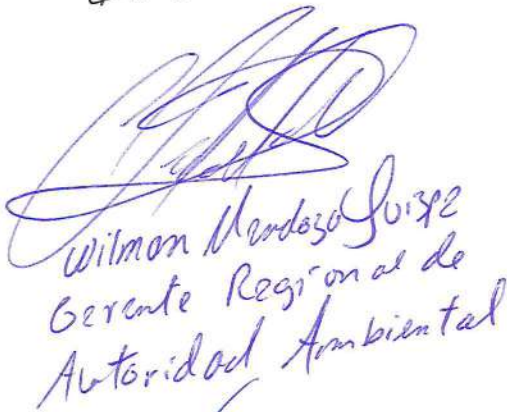 Wilman Mendoza Quispe
Gerente Regional de
Autoridad Ambiental